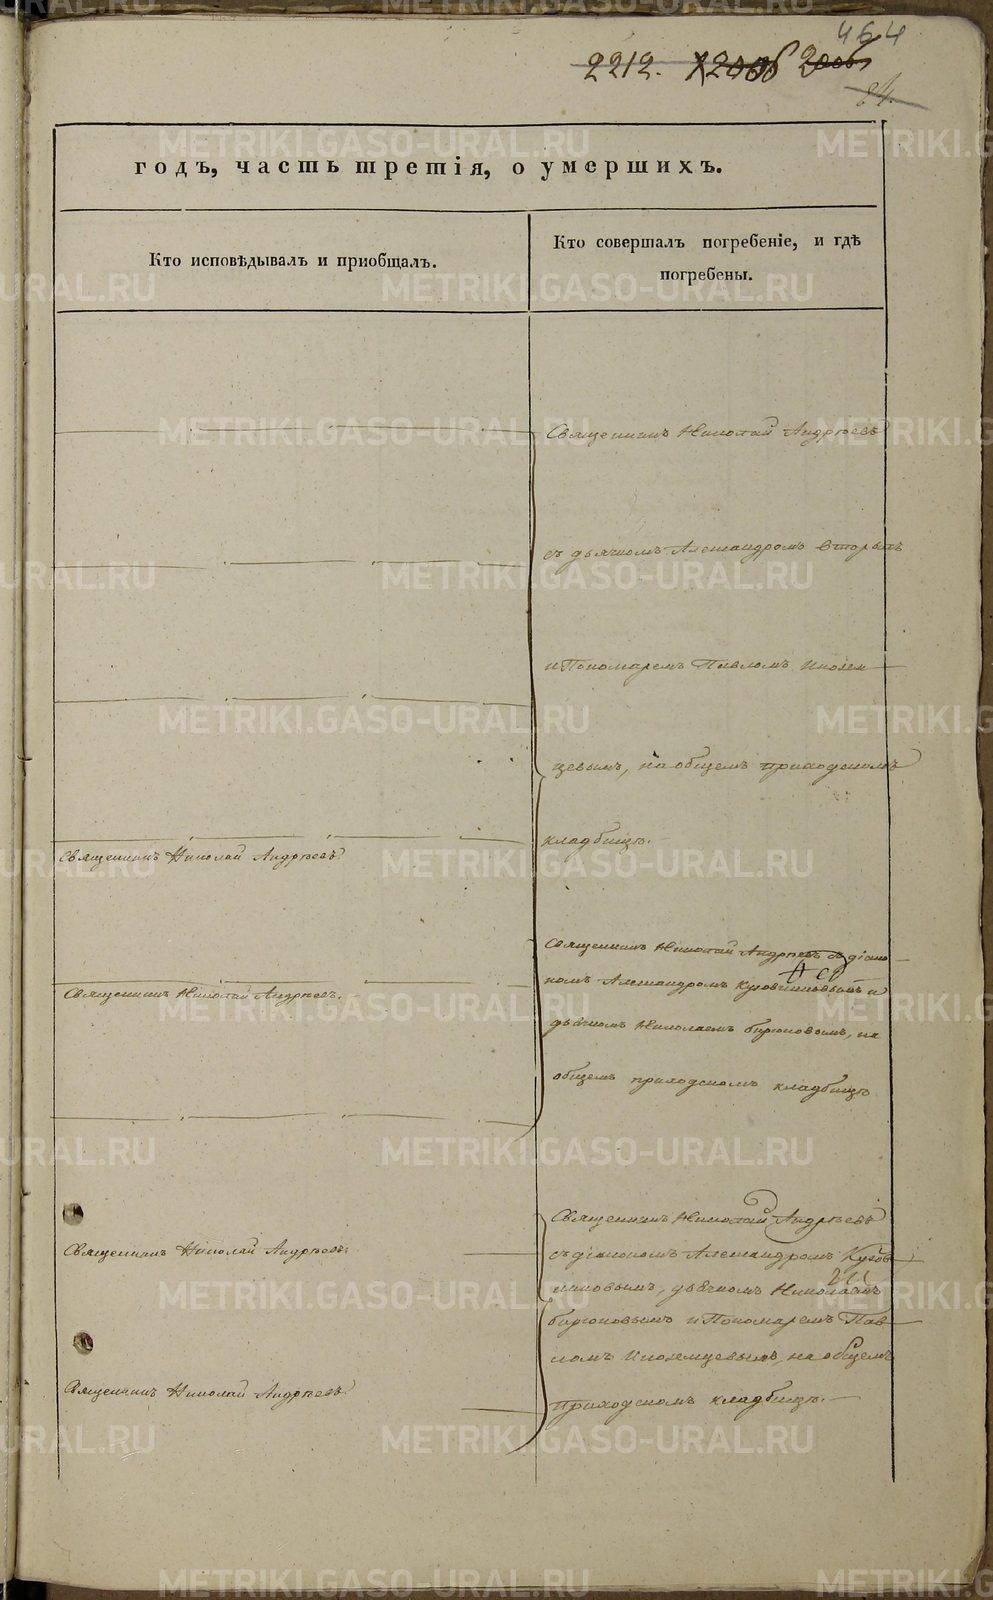 464
2212.
84.
годъ, часть третія, о умершихъ.
Кто исповѣдывалъ и пріобщалъ.
Кто совершалъ погребеніе, и гдѣ
погребены.
Священникъ Николай Андреевъ
съ дьячкомъ Александромъ
и Пономаремъ Павломъ Инозем
цевымъ, на общемъ приходскомъ
кладбищѣ.
Священникъ Николай Андреевъ.
Священникъ Николай Андреевъ съ діако
номъ Александромъ и
Священникъ Николай Андреевъ.
дьячкомъ Николаемъ Бирюковымъ, на
общемъ приходскомъ кладбищѣ
Священникъ Николай Андреевъ
Священникъ Николай Андреевъ.
съ діакономъ Александромъ
дьячкомъ Николаемъ
Бирюковымъ и Пономаремъ Пав
ломъ Иноземцевымъ, на общемъ
Священникъ Николай Андреевъ.
приходскомъ кладбищѣ.
METRIKI.GASO-URAL.RU